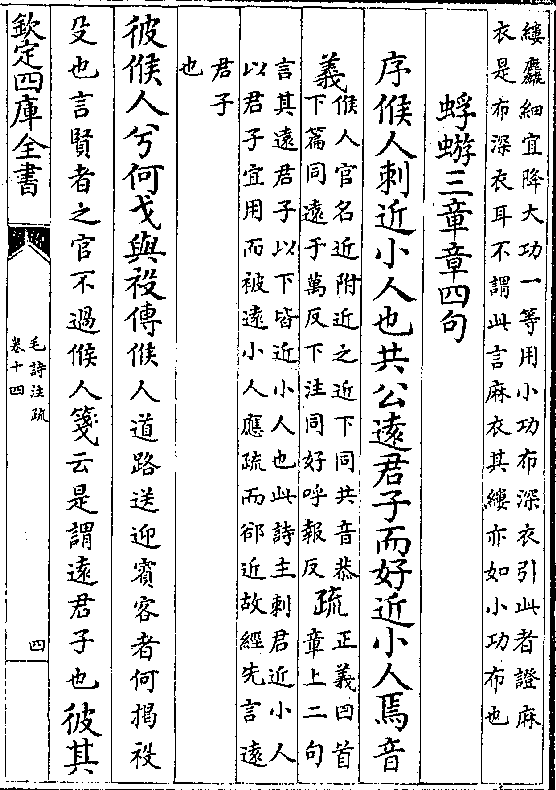 縷麤細宜降大功一等用小功布深衣引此者證麻
衣是布深衣耳不謂此言麻衣其縷亦如小功布也
蜉蝣三章章四句
序候人刺近小人也共公遠君子而好近小人焉音
義
候人官名近附近之近下同共音恭
下篇同遠于萬反下注同好呼報反
疏
正義曰首
章上二句
言其遠君子以下皆近小人也此詩主刺君近小人
以君子宜用而被遠小人應疏而郤近故經先言遠
君子
也
彼候人兮何戈與祋傳候人道路送迎賓客者何揭祋
殳也言賢者之官不過候人箋云是謂遠君子也彼其
欽定四庫全書
毛詩注疏
卷十四
四